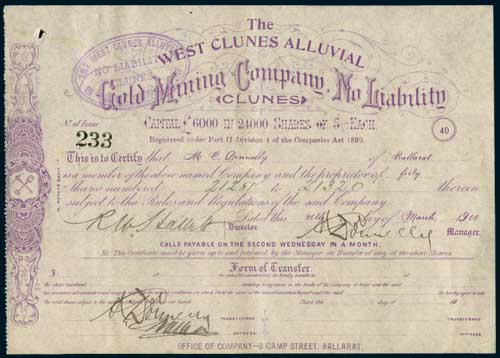 The
WEST CLUNES ALLUVIAL
Gold Mining Company, No Liability
CLUNES
THE WEST CLUNES ALLUVIAL
NO LIABILITY
CLUNES
CAPITAL £6000 IN 24000 SHARES OF 5/- EACH.
Registered under Part II Division 1 of the Companies Act 1890.
No. of Issue
233
40
This is to Certify that M. C. Donnelly of Ballarat
is a member of the above named Company and the proprietor of forty
shares numbered 21281 to 21320 thereon
subject to the Rules and Regulations of the said Company.
Dated this 20th day of March 1900
Director. Manager.
CALLS PAYABLE ON THE SECOND WEDNESDAY IN A MONTH.
This Certificate must be given up to and retained by the Manager on Transfer of any of the above Shares.
Form of Transfer.
Dated this day of 19
TRANSFEROR TRANSFEREE
WITNESS WITNESS
OFFICE OF COMPANY—9 CAMP STREET, BALLARAT.